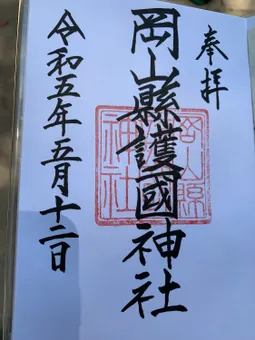 奉拝
岡山縣護國神社
令和五年五月十二日
岡山縣
神社